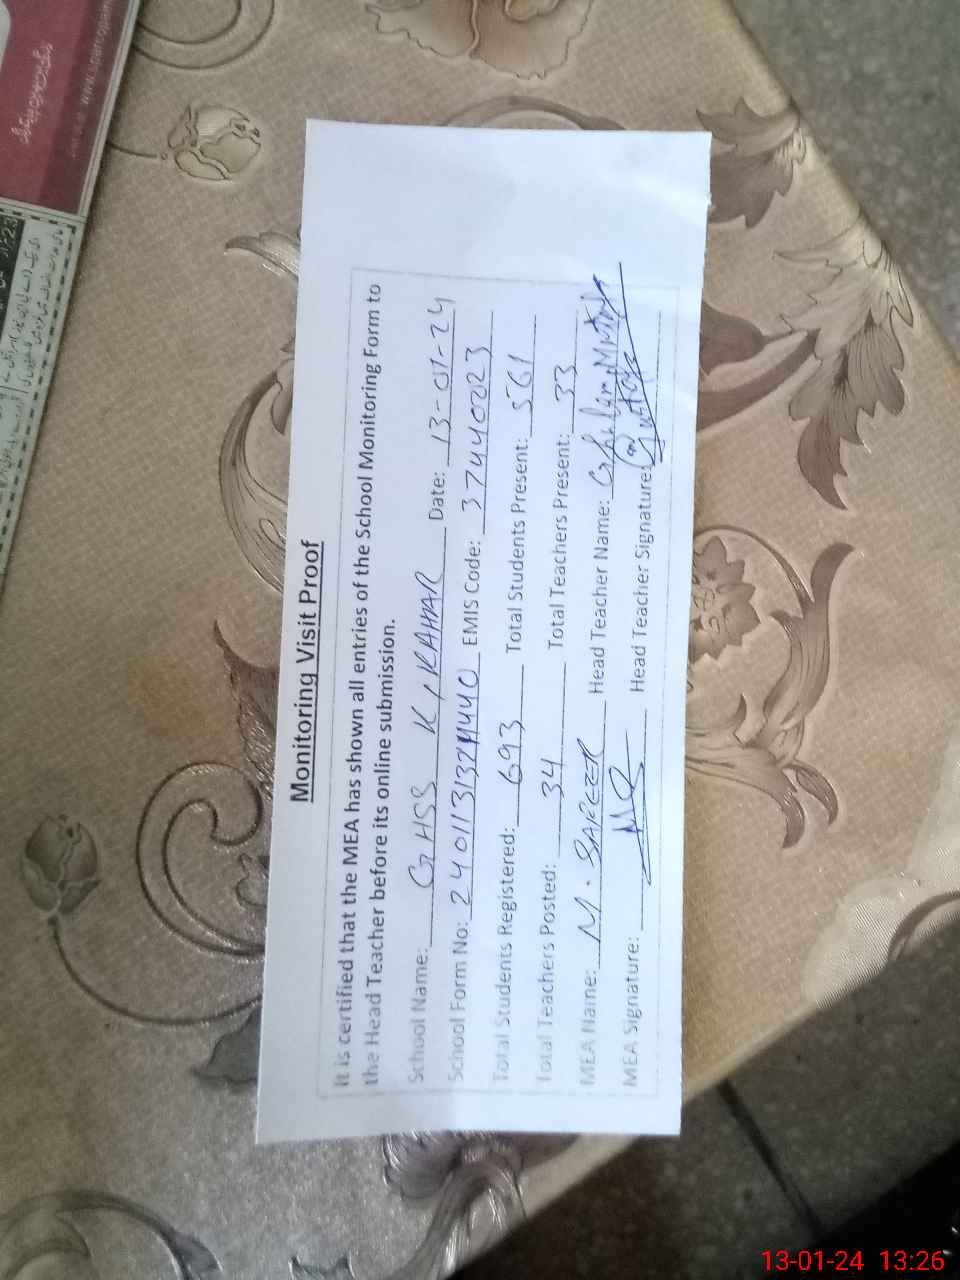 Monitoring Visit Proof
It is certified that the MEA has shown all entries of the School Monitoring Form to
the Head Teacher before its online submission.
School Name: GHSS K/KAHAR Date: 13-01-24
School Form No: EMIS Code: 37440023
Total Students Registered: 693 Total Students Present: 561
Total Teachers Posted: 34 Total Teachers Present: 33
MEA Name: M. Head Teacher Name: Ghulam
MEA Signature: Head Teacher Signature:
13-01-24 13:26